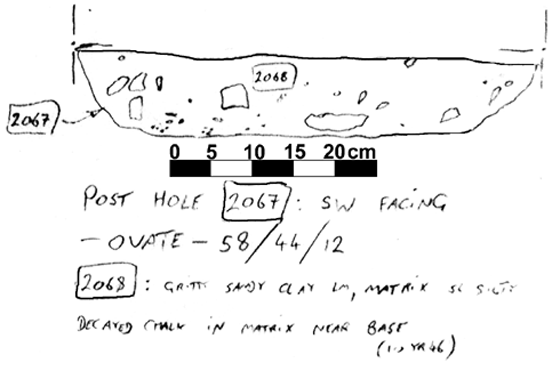 2068
2067
0 5 10 15 20cm
POST HOLE 2067: SW FACING
- OVATE - 58/44/12
2068: GRITTY SANDY CLAY LM, MATRIX
DECAYED CHALK IN MATRIX NEAR BASE